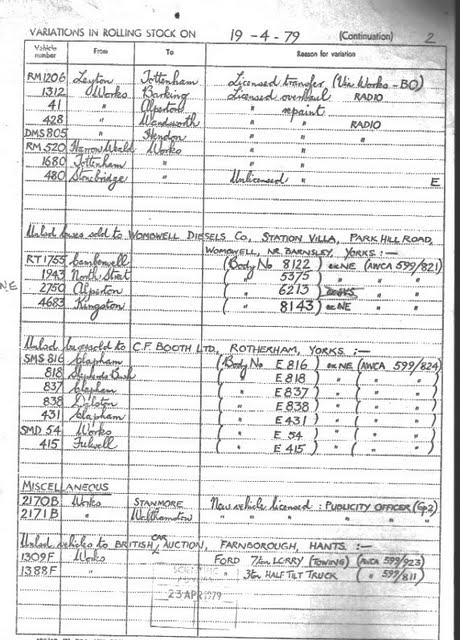 VARIATIONS IN ROLLING STOCK ON 19-4-79 (Continuation) 2
Vehicle number From To Reason for variation
RM1206 Leyton Tottenham Licensed transfer (Via Works - BO)
1312 Works Barking Licensed overhaul RADIO
41 " Alperton " repaint
428 " Wandsworth " " RADIO
DMS 805 " Hendon " " "
RM 520 Harrow Weald Works " "
1680 Tottenham " " "
480 Stonebridge " Unlicensed " E
Unlsd buses sold to WOMBWELL DIESELS CO, STATION VILLA, PARK HILL ROAD,
WOMBWELL, NR BARNSLEY, YORKS :-
RT 1755 Camberwell (Body No 8122) ex NE (AWCA 599/821)
1943 North Street ( " 5375 ) " ( " " )
NE 2750 Alperton ( " 6213 ) ( " " )
4683 Kingston ( " 8143 ) ex NE ( " " )
Unlsd buses sold to C.F. BOOTH LTD., ROTHERHAM, YORKS :-
SMS 816 Clapham (Body No E 816) ex NE (AWCA 599/824)
818 Shepherds Bush ( " E 818 ) " ( " " )
837 Clapham ( " E 837 ) " ( " " )
838 Dalston ( " E 838 ) " ( " " )
431 Clapham ( " E 431 ) " ( " " )
SMD 54 Works ( " E 54 ) " ( " " )
415 Fulwell ( " E 415 ) " ( " " )
MISCELLANEOUS
2170B Works STANMORE New vehicle licensed : PUBLICITY OFFICER (Gp2)
2171B " Walthamstow " " " " " "
Unlsd vehicles to BRITISH CAR AUCTION, FARNBOROUGH, HANTS :-
1309F Works FORD 7 ton LORRY (TOWING) (AWCA 599/923)
1388F " " 3 ton HALF TILT TRUCK ( " 599/811)
23 APR 1979